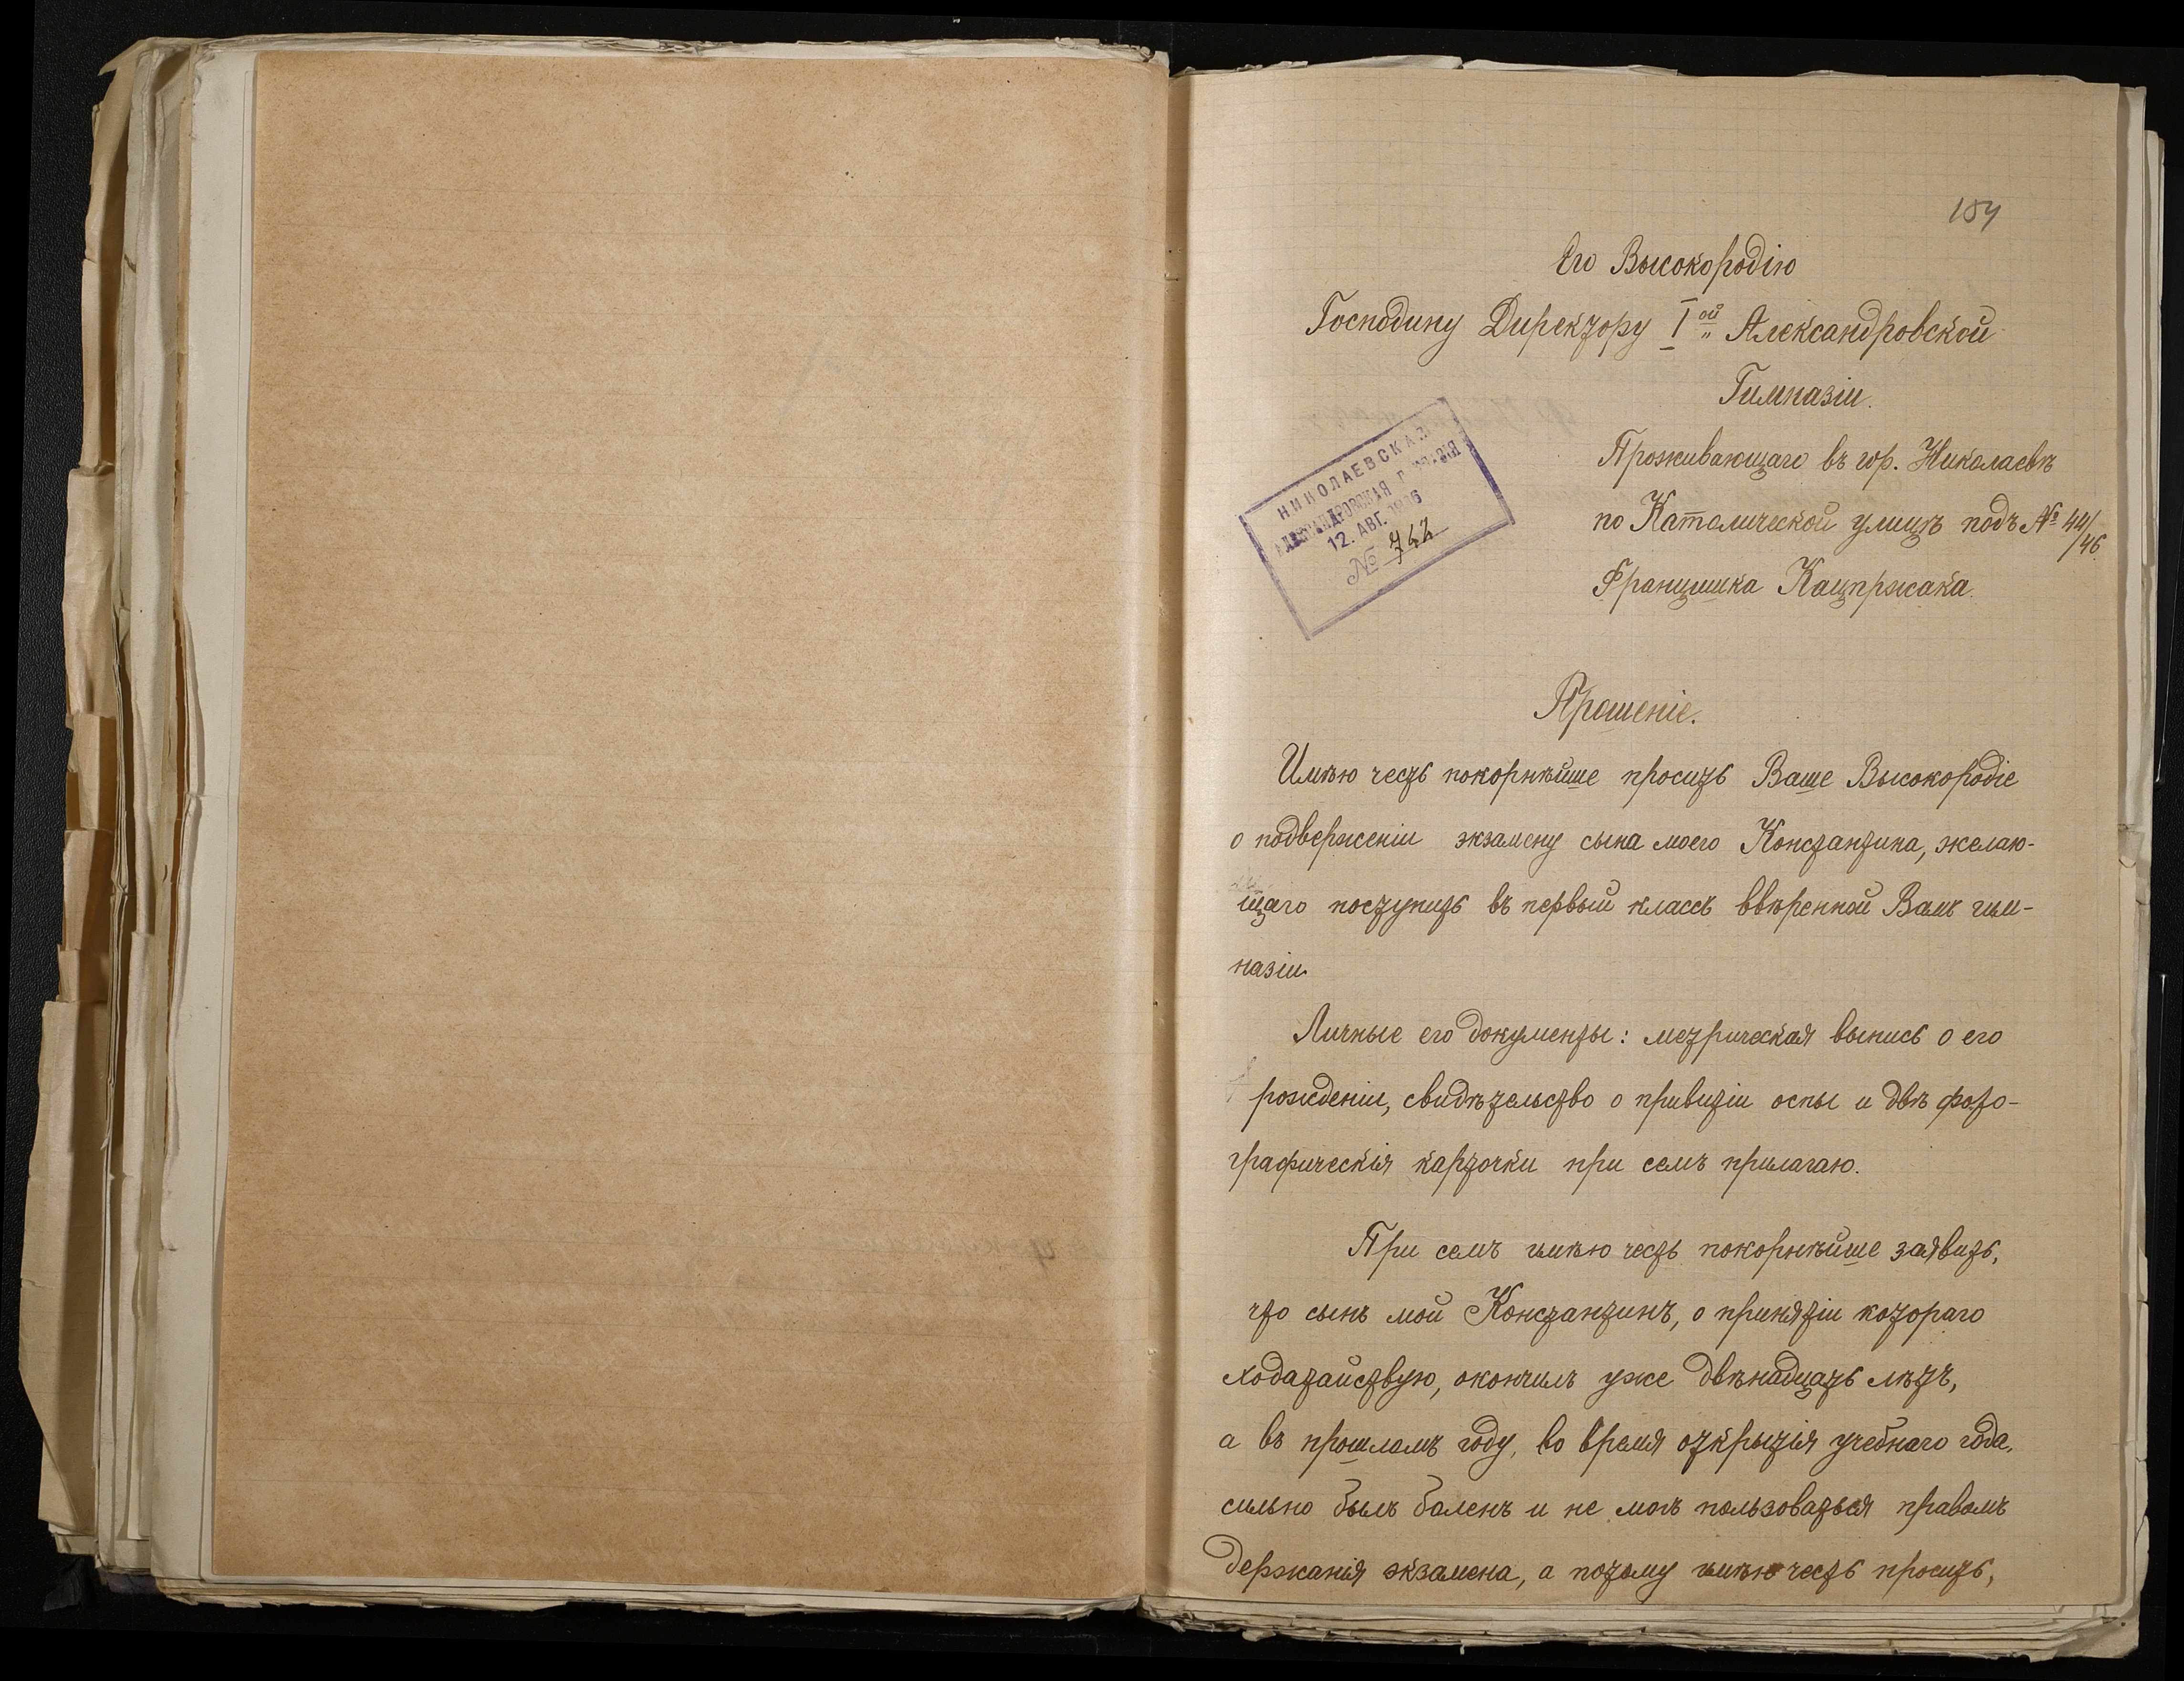 184
Его Высокородію
Господину Директору I ой Александровской
Гимназіи.
НИКОЛАЕВСКАЯ
АЛЕКСАНДРОВСКАЯ
12. АВГ. 1906
№ 742
Проживающаго въ гор. Николаевѣ
по Католической улицѣ подъ № 44/46
Францишка Кацпржака.
Прошеніе.
Имѣю честь покорнѣйше просить Ваше Высокородіе
о подверженіи экзамену сына моего Константина, желаю-
щаго поступить въ первый классъ ввѣренной Вамъ гим-
назіи.
Личные его документы: метрическая выпись о его
рожденіи, свидѣтельство о привитіи оспы и двѣ фото-
графическія карточки при семъ прилагаю.
При семъ имѣю честь покорнѣйше заявить,
что сынъ мой Константинъ, о принятіи котораго
ходатайствую, окончилъ уже двѣнадцать лѣтъ,
а въ прошломъ году, во время открытія учебнаго года,
сильно былъ боленъ и не могъ пользоваться правомъ
держанія экзамена, а потому имѣю честь просить,